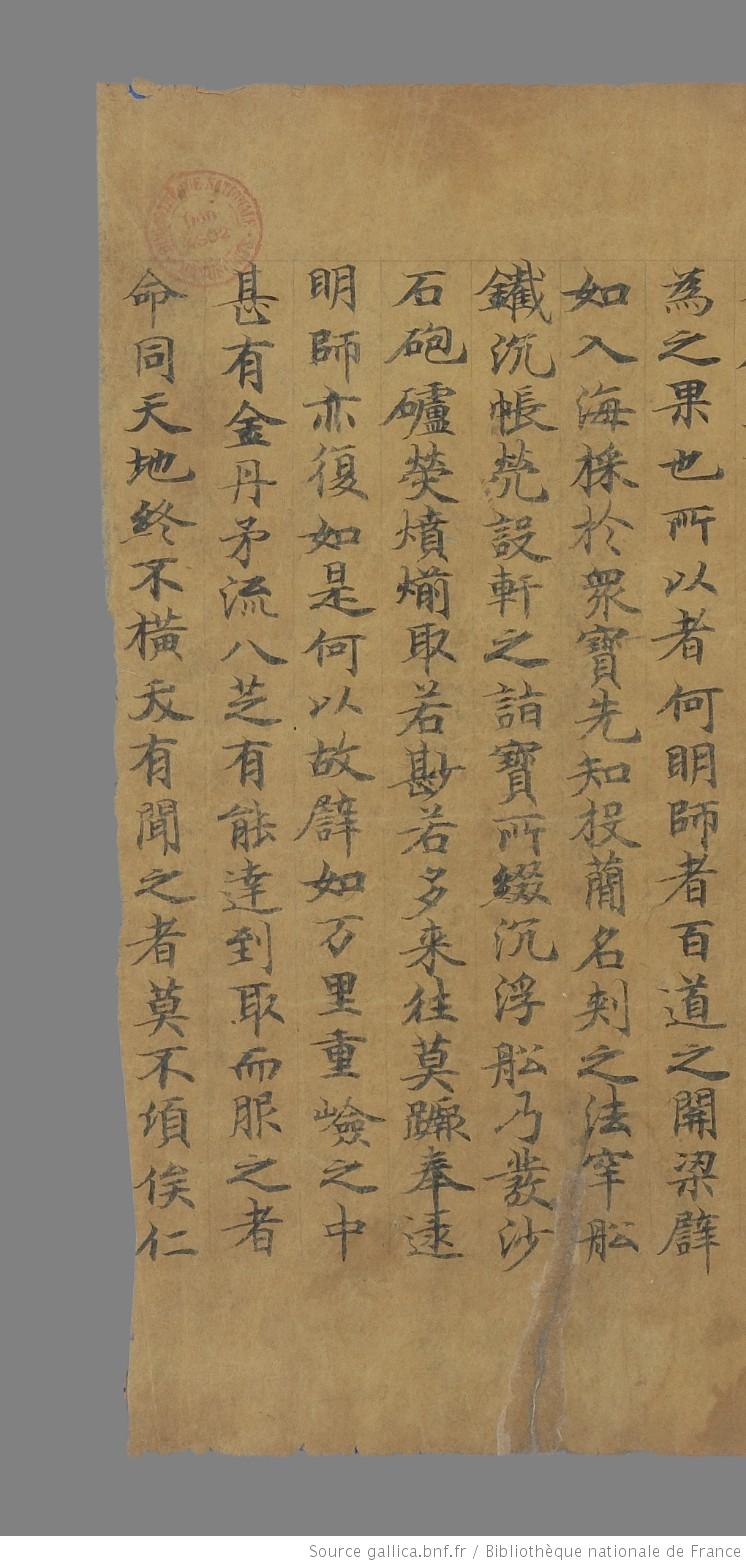 為之果也所以者何明師者百道之開梁譬
如入海採於眾寶先知投蕳名刾之法窂舩
鐵沉帳㲈設軒之詣寶所綴沉浮舩乃發沙
石砲礶熒燌煎取若尠若多来往莫躓奉逮
明師亦復如是何以故譬如万里重嶮之中
甚有金丹矛流八芝有能達到取而服之者
命同天地終不横夭有聞之者莫不傾俟仁
Source gallica.bnf.fr / Bibliothèque nationale de France